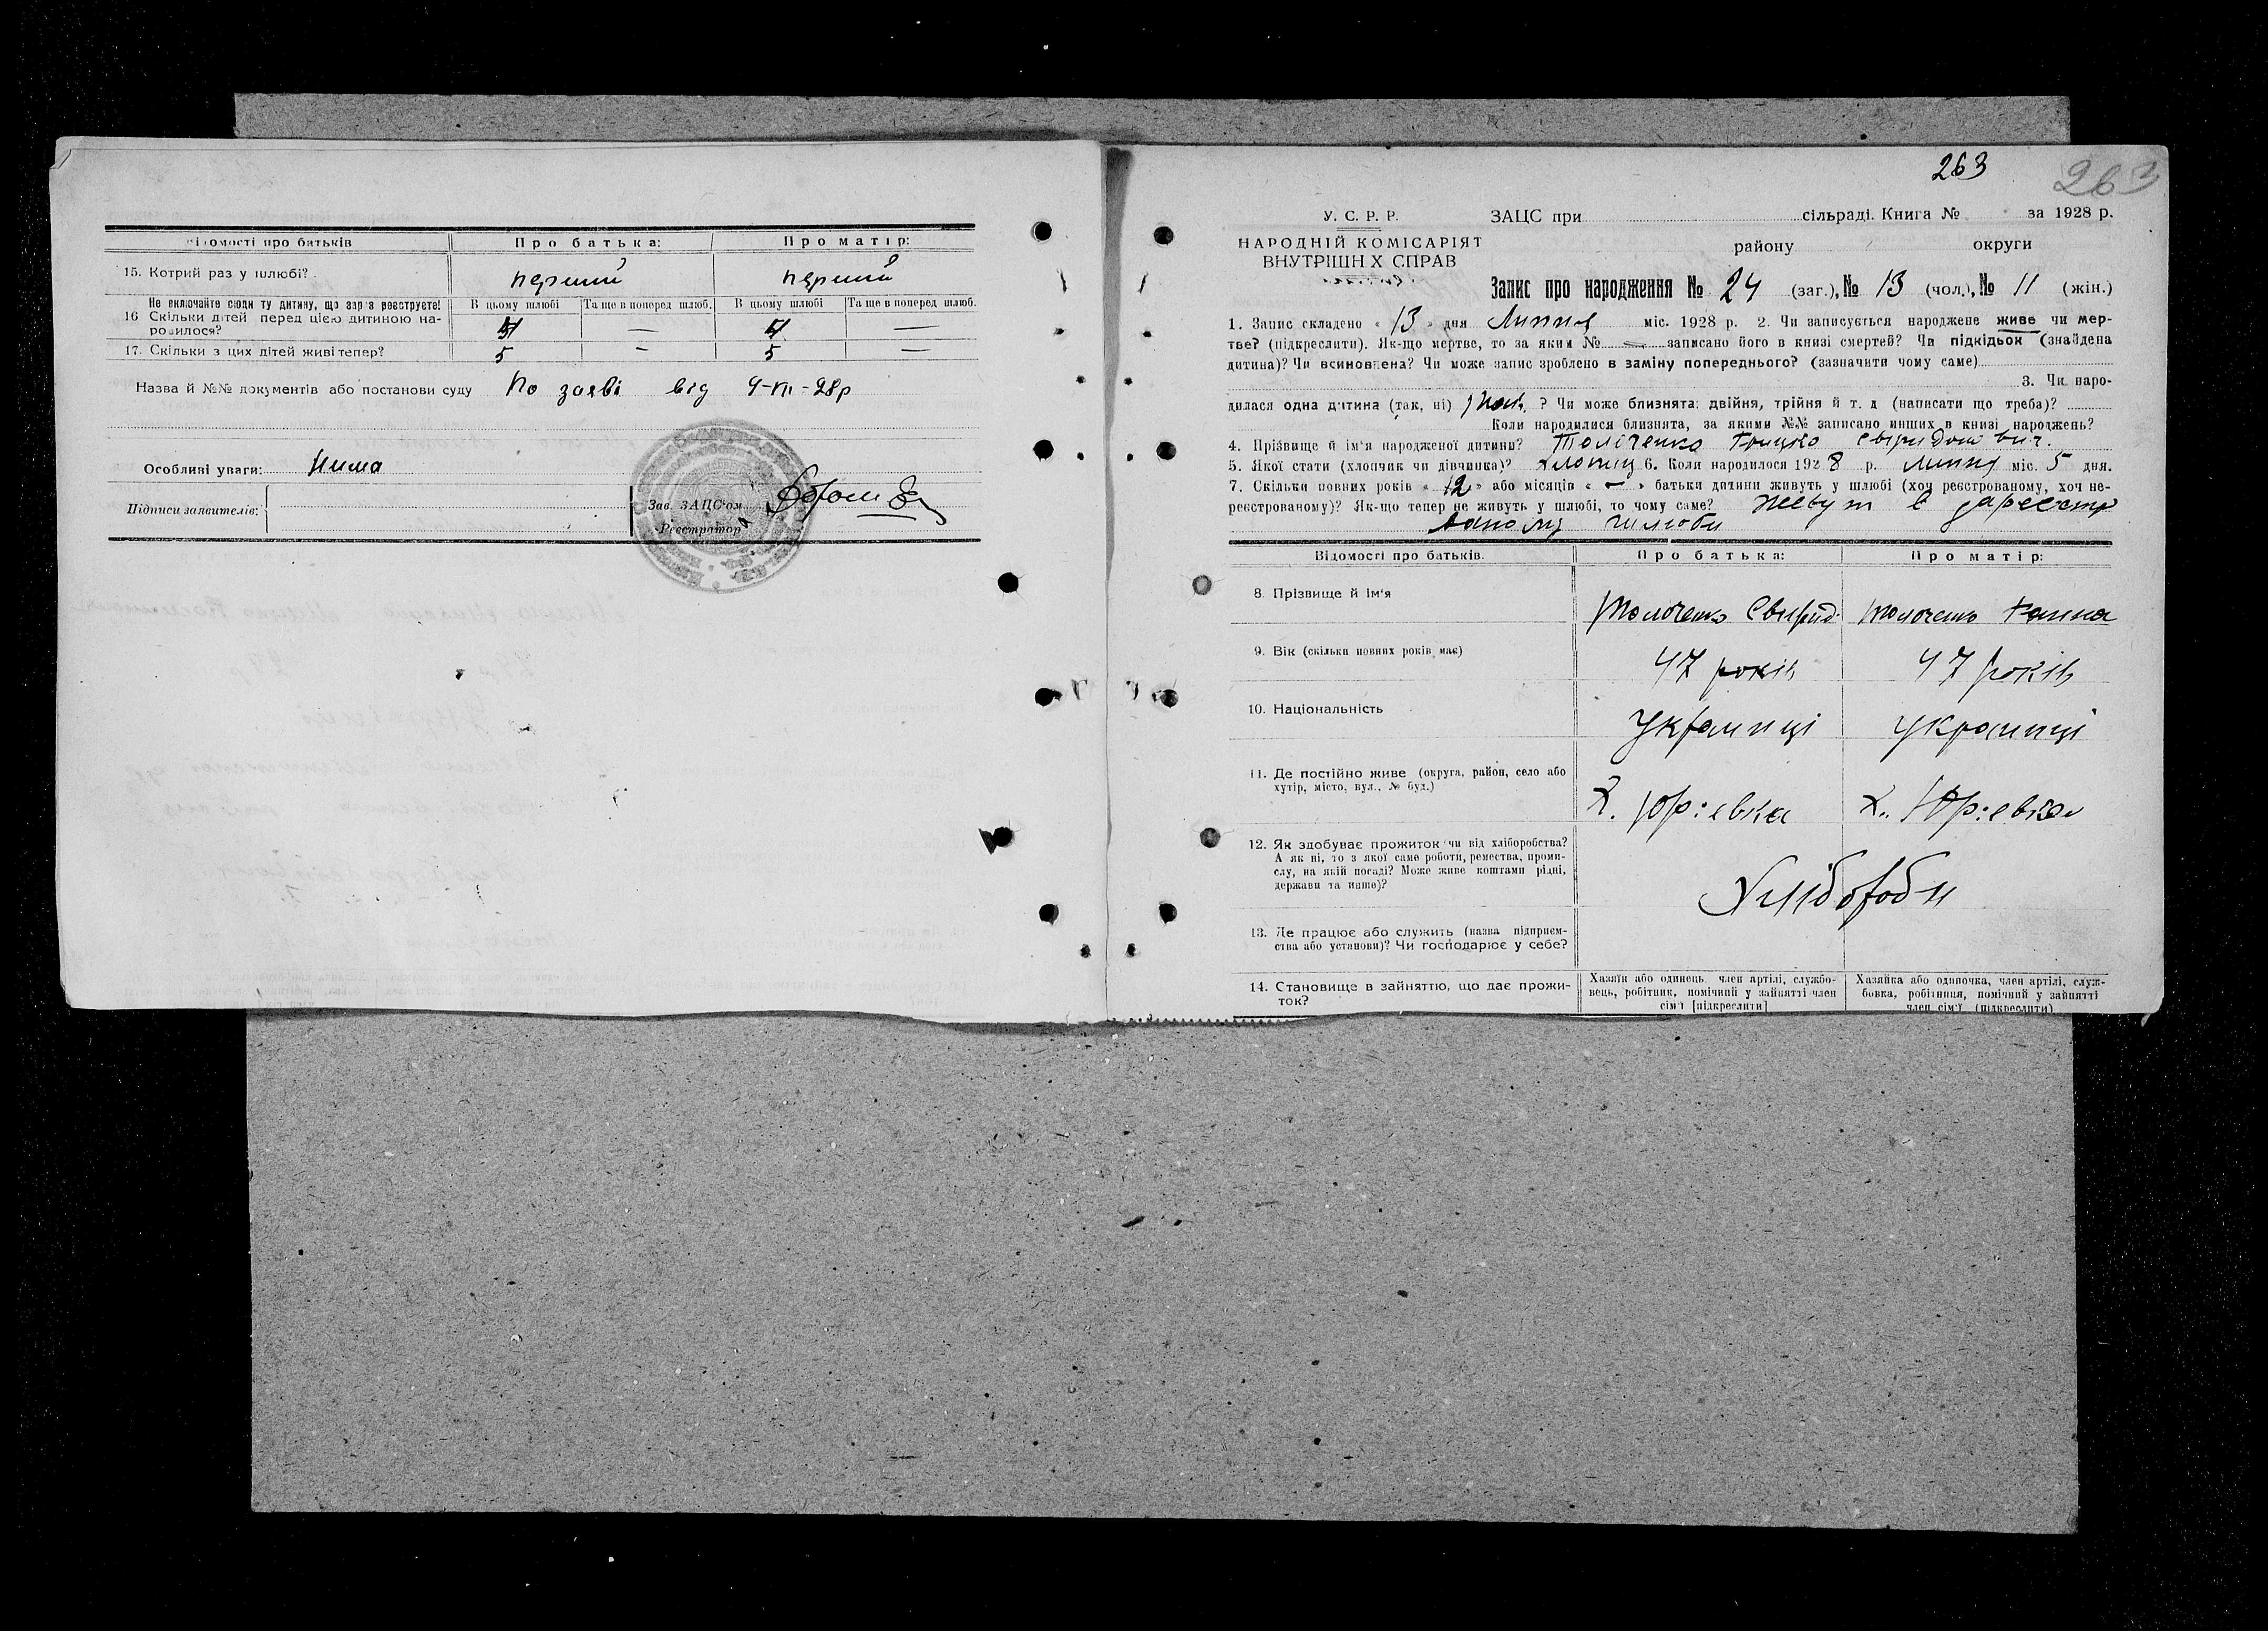 Відомості про батьків
Про батька:
Про матір:
15. Котрий раз у шлюбі?
перший
перший
Не включайте сюди ту дитину, що зараз реєструєте!
В цьому шлюбі
Та ще в поперед шлюб.
В цьому шлюбі
Та ще в поперед шлюб.
16 Скільки дітей перед цією дитиною на-
родилося?
—
—
17. Скільки з цих дітей живі тепер?
5
—
5
—
Назва й №№ документів або постанови суду По заяві від
Особливі уваги: Нима
Підписи заявителів:
Зав. ЗАЦС'ом
Реєстратор
263
263
У. С. Р. Р.
НАРОДНІЙ КОМІСАРІЯТ
ВНУТРІШН Х СПРАВ
ЗАЦС при сільраді. Книга № за 1928 р.
району округи
Запис про народження № 24 (заг.), № 13 (чол.), № 11 (жін.)
1. Запис складено « 13 » дня Липня міс. 1928 р. 2. Чи записується народжене живе чи мер-
тве? (підкреслити). Як-що мертве, то за яким № — записано його в книзі смертей? Чи підкідьок (знайдена
дитина)? Чи всиновлена? Чи може запис зроблено в заміну попереднього? (зазначити чому саме)
3. Чи наро-
дилася одна дитина (так, ні) так ? Чи може близнята: двійня, трійня й т. д (написати що треба)?
Коли народилися близнята, за якими №№ записано инших в книзі народжень?
4. Прізвище й ім'я народженої дитини? Толоченко Грицько
5. Якої стати (хлопчик чи дівчинка)? хлопиц 6. Коли народилося 1928 р. липня міс. 5 дня.
7. Скільки повних років « 12 » або місяців « — » батьки дитини живуть у шлюбі (хоч реєстрованому, хоч не-
реєстрованому)? Як-що тепер не живуть у шлюбі, то чому саме? Живут в зареєстр
шлюби
Відомості про батьків.
Про батька:
Про матір:
8. Прізвище й ім'я
Толоченко Свирид
Толоченко Ганна
9. Вік (скільки повних років має)
47 років
47 років
10. Національність
Українці
Українці
11. Де постійно живе (округа, район, село або
хутір, місто, вул., № буд.)
Х. Юрієвка
Х. Юрієвка
12. Як здобуває прожиток чи від хліборобства?
А як ні, то з якої саме роботи, ремества, проми-
слу, на якій посаді? Може живе коштами рідні,
держави та инше)?
Хлібороби
13. Де працює або служить (назва підприєм-
ства або установи)? Чи господарює у себе?
14. Становище в зайняттю, що дає прожи-
ток?
Хазяїн або одинець член артілі, службо-
вець, робітник, помічний у зайнятті член
сім'ї [підкреслити]
Хазяйка або одиночка, член артілі, служ-
бовка, робітниця, помічний у зайнятті
член сім'ї (підкреслити)